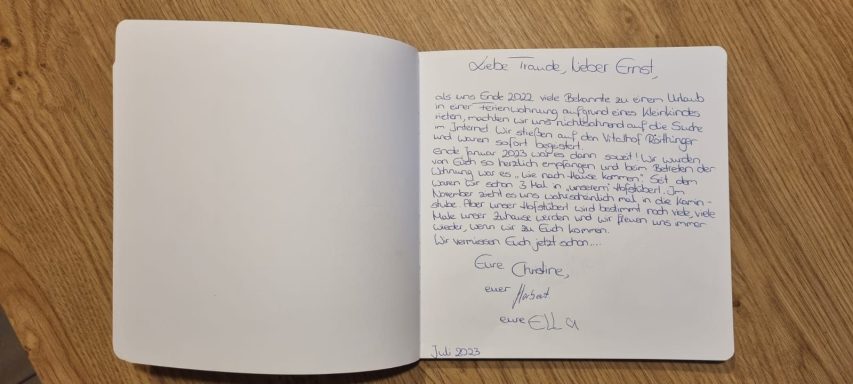 Liebe Traude, lieber Ernst,
als uns Ende 2022 viele Bekannte zu einem Urlaub
in einer Ferienwohnung aufgrund eines Kleinkindes
rieten, machten wir uns nichtsahnend auf die Suche
im Internet. Wir stießen auf den Vitalhof Röthinger
und waren sofort begeistert.
Ende Januar 2023 war es dann soweit! Wir wurden
von Euch so herzlich empfangen und beim Betreten der
Wohnung war es "wie nach Hause kommen". Seit dem
waren wir schon 3 Mal in "unserem" Hofstüberl. Im
November zieht es uns wahrscheinlich mal in die Kamin-
stube. Aber unser Hofstüberl wird bestimmt noch viele, viele
Male unser Zuhause werden und wir freuen uns immer
wieder, wenn wir zu Euch kommen.
Wir vermissen Euch jetzt schon....
Eure Christine,
euer Herbert
eure ELLA
Juli 2023